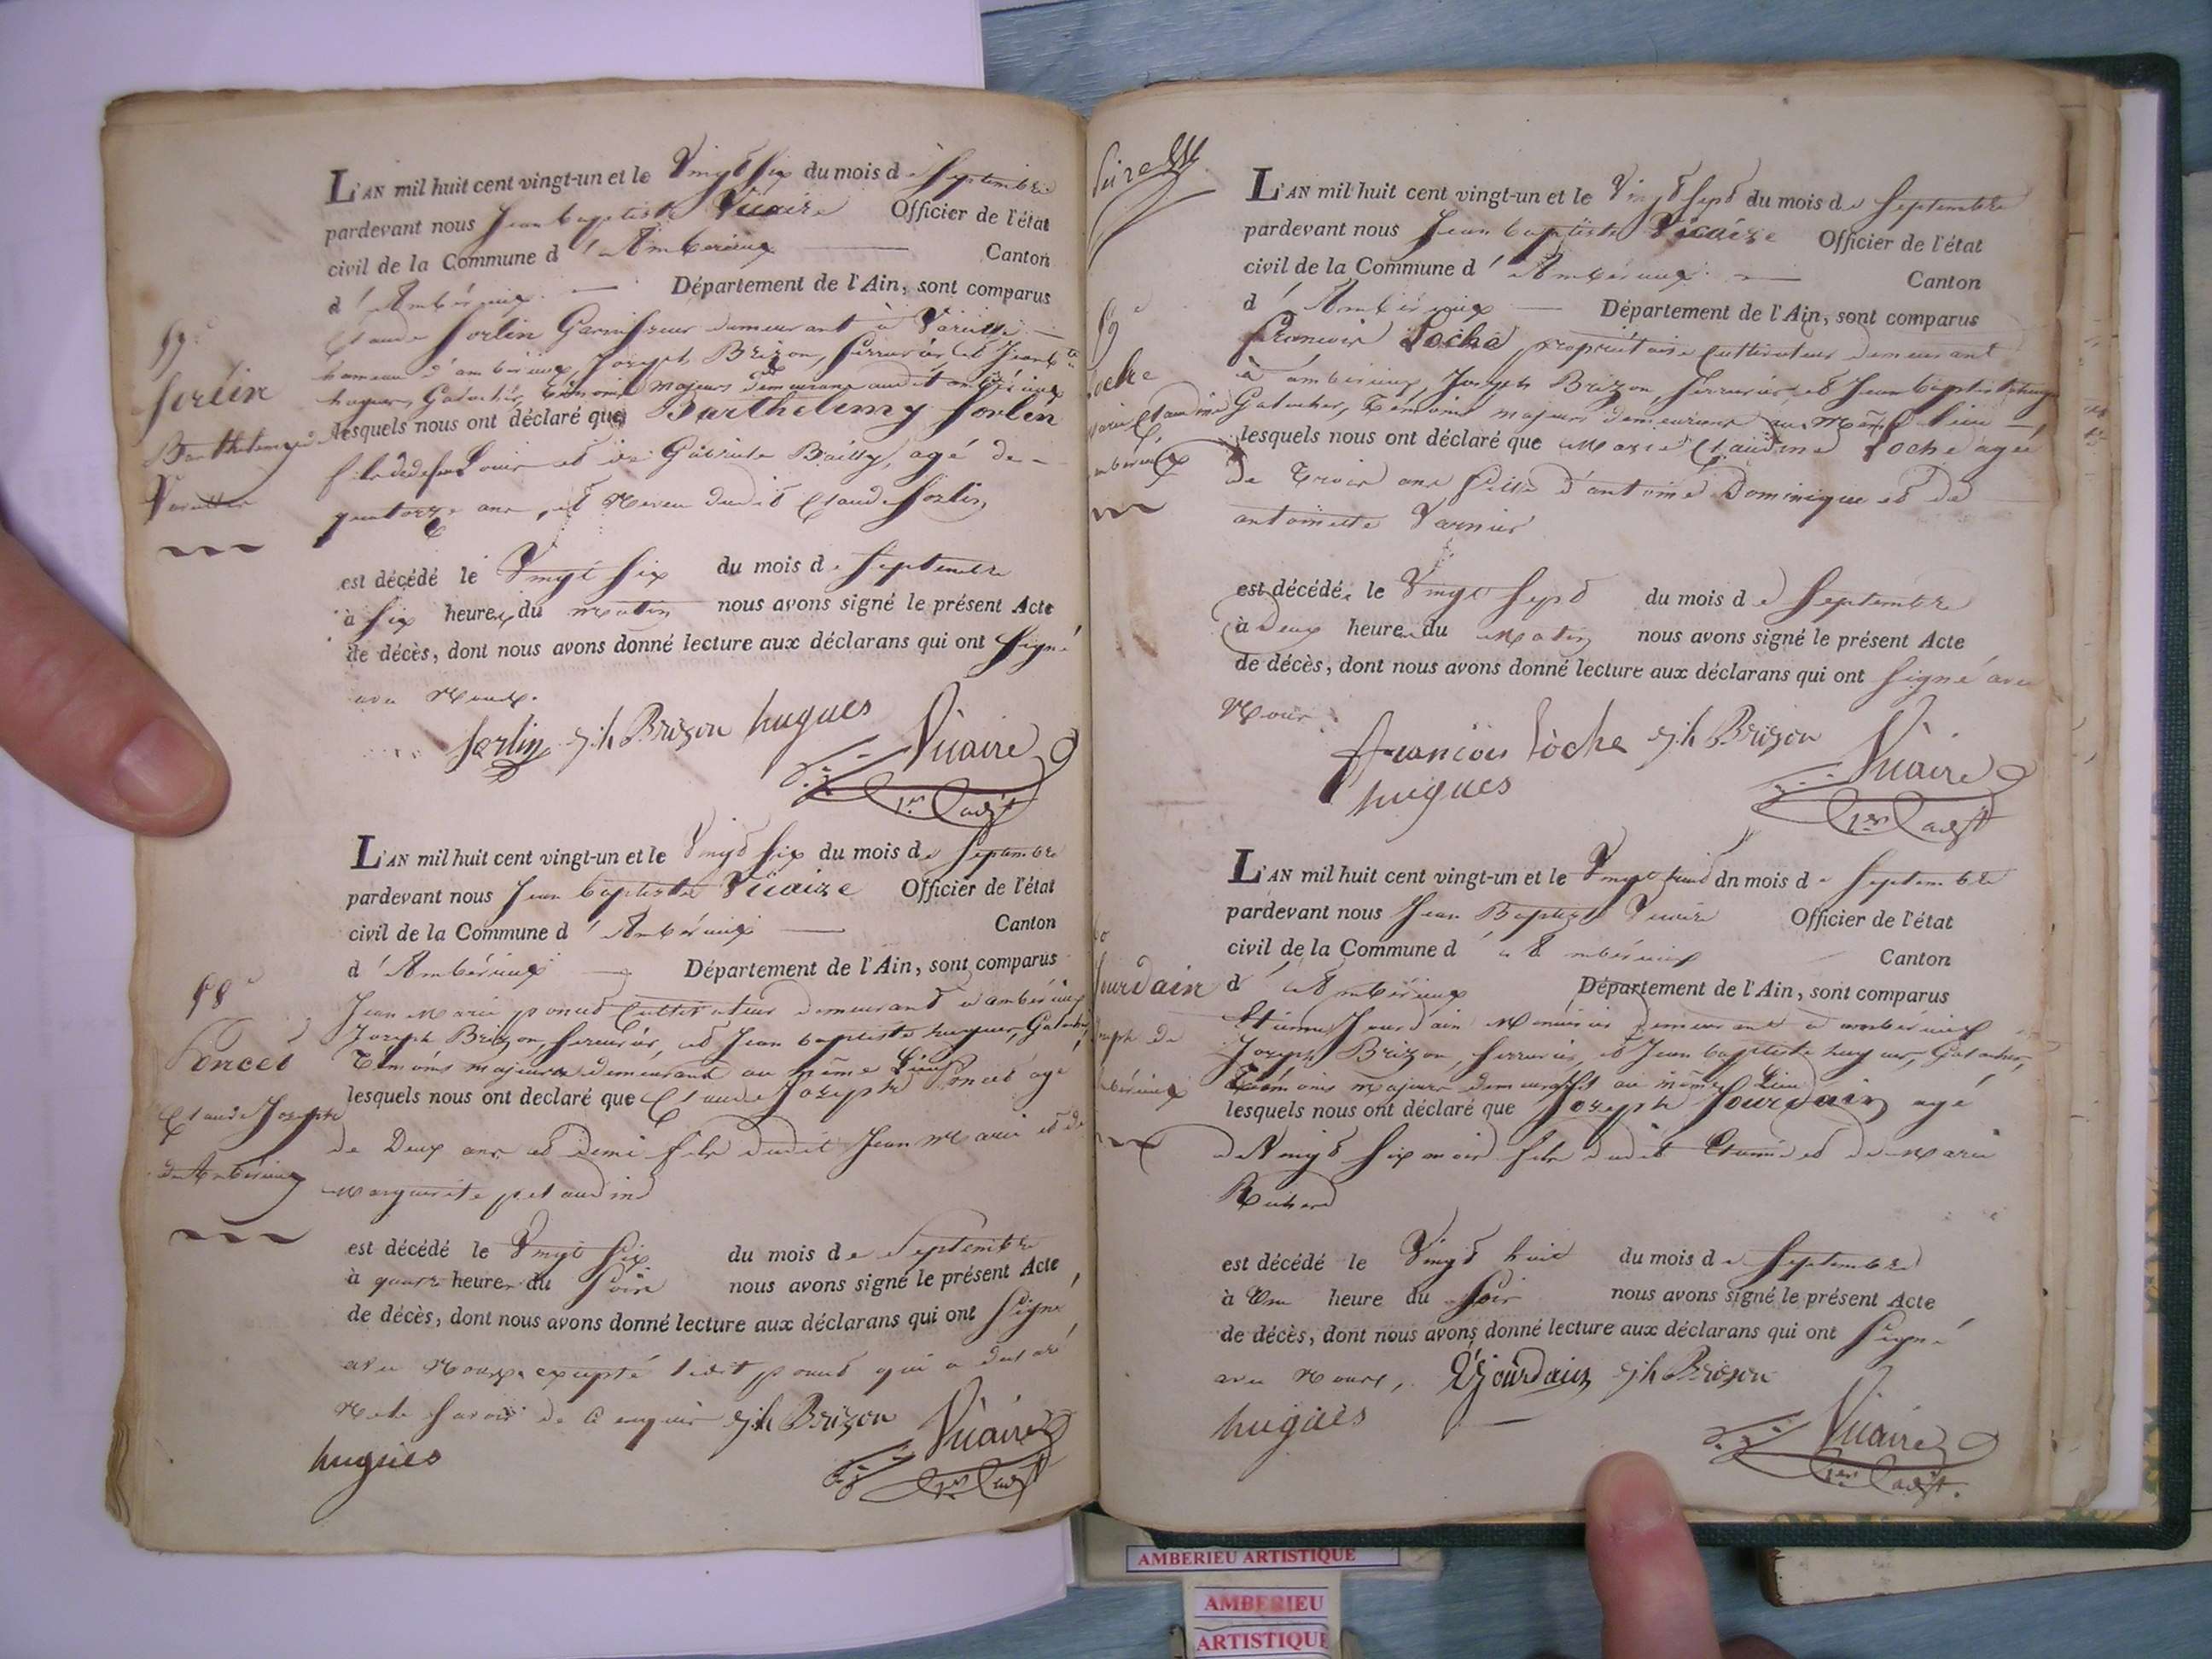 L'AN mil huit cent vingt-un et le Vingt Six du mois de Septembre
pardevant nous Jean baptiste Vicaire Officier de l'état
civil de la Commune d'Ambérieux Canton
d'Ambérieux Département de l'Ain, sont comparus
Claude Sorlin demeurant à Vareille
hameau d'ambérieux, Joseph Brizon, Serrurier et Jean bte
hugues, témoins majeurs demeurans audit ambérieux
lesquels nous ont déclaré que Barthelemy Sorlin
fils de défunt Louis et de Gabriele Bailly, agé de
quatorze ans, et Neveu dudit Claude Sorlin
est décédé le Vingt Six du mois de Septembre
à Six heures du matin nous avons signé le présent Acte
de décès, dont nous avons donné lecture aux déclarans qui ont Signé
avec Nous.
Sorlin jh Brizon hugues Vicaire
1er adjt
57e
Sorlin
Barthelemy
Vareille
L'AN mil huit cent vingt-un et le Vingt Six du mois de Septembre
pardevant nous Jean baptiste Vicaire Officier de l'état
civil de la Commune d'Ambérieux Canton
d'Ambérieux Département de l'Ain, sont comparus
Jean Marie poncet Cultivateur demeurant a ambérieux
Joseph Brizon, Serrurier, et Jean baptiste hugues,
Témoins majeurs demeurant au même Lieu
lesquels nous ont declaré que Claude Joseph Poncet agé
de Deux ans et Demi fils dudit Jean Marie et de
Marguerite petaudin
est décédé le Vingt Six du mois de Septembre
à quatre heures du Soir nous avons signé le présent Acte,
de décès, dont nous avons donné lecture aux déclarans qui ont Signé,
avec Nous, excepté ledit poncet qui a déclaré
Ne le Savoir de ce enquis jh Brizon Vicaire
hugues 1er adjt
58e
Poncet
Claude Joseph
d'Ambérieux
L'AN mil huit cent vingt-un et le Vingt Sept du mois de Septembre
pardevant nous Jean baptiste Vicaire Officier de l'état
civil de la Commune d'Ambérieux Canton
d'Ambérieux Département de l'Ain, sont comparus
François Loche propriétaire Cultivateur demeurant
à ambérieux, Joseph Brizon, Serrurier, et Jean baptiste hugues
Témoins majeurs demeurans au Même lieu
lesquels nous ont déclaré que Marie Claudine Loche agée
de Trois ans fille d'antoine Dominique et de
antoinette Varnier
est décédée le Vingt Sept du mois de Septembre
à Deux heures du Matin nous avons signé le présent Acte
de décès, dont nous avons donné lecture aux déclarans qui ont Signé avec
Nous
françois lôche jh Brizon Vicaire
hugues 1er adjt
59e
Loche
Marie Claudine
L'AN mil huit cent vingt-un et le Vingt huit dn mois de Septembre
pardevant nous Jean Baptiste Vicaire Officier de l'état
civil de la Commune d'Ambérieux Canton
d'Ambérieux Département de l'Ain, sont comparus
Etienne Jourdain Menuisier Demeurant à ambérieux
Joseph Brizon, Serrurier, et Jean baptiste hugues,
Témoins majeurs demeurants au même Lieu
lesquels nous ont déclaré que Joseph Jourdain agé
de Vingt Six mois fils dudit Etienne et de Marie
Richard
est décédé le Vingt huit du mois de Septembre
à Une heure du Soir nous avons signé le présent Acte
de décès, dont nous avons donné lecture aux déclarans qui ont Signé
avec Nous, Ejourdain jh Brizon
hugues Vicaire
1er adjt.
Jourdain
Joseph de
AMBERIEU ARTISTIQUE
AMBERIEU
ARTISTIQUE